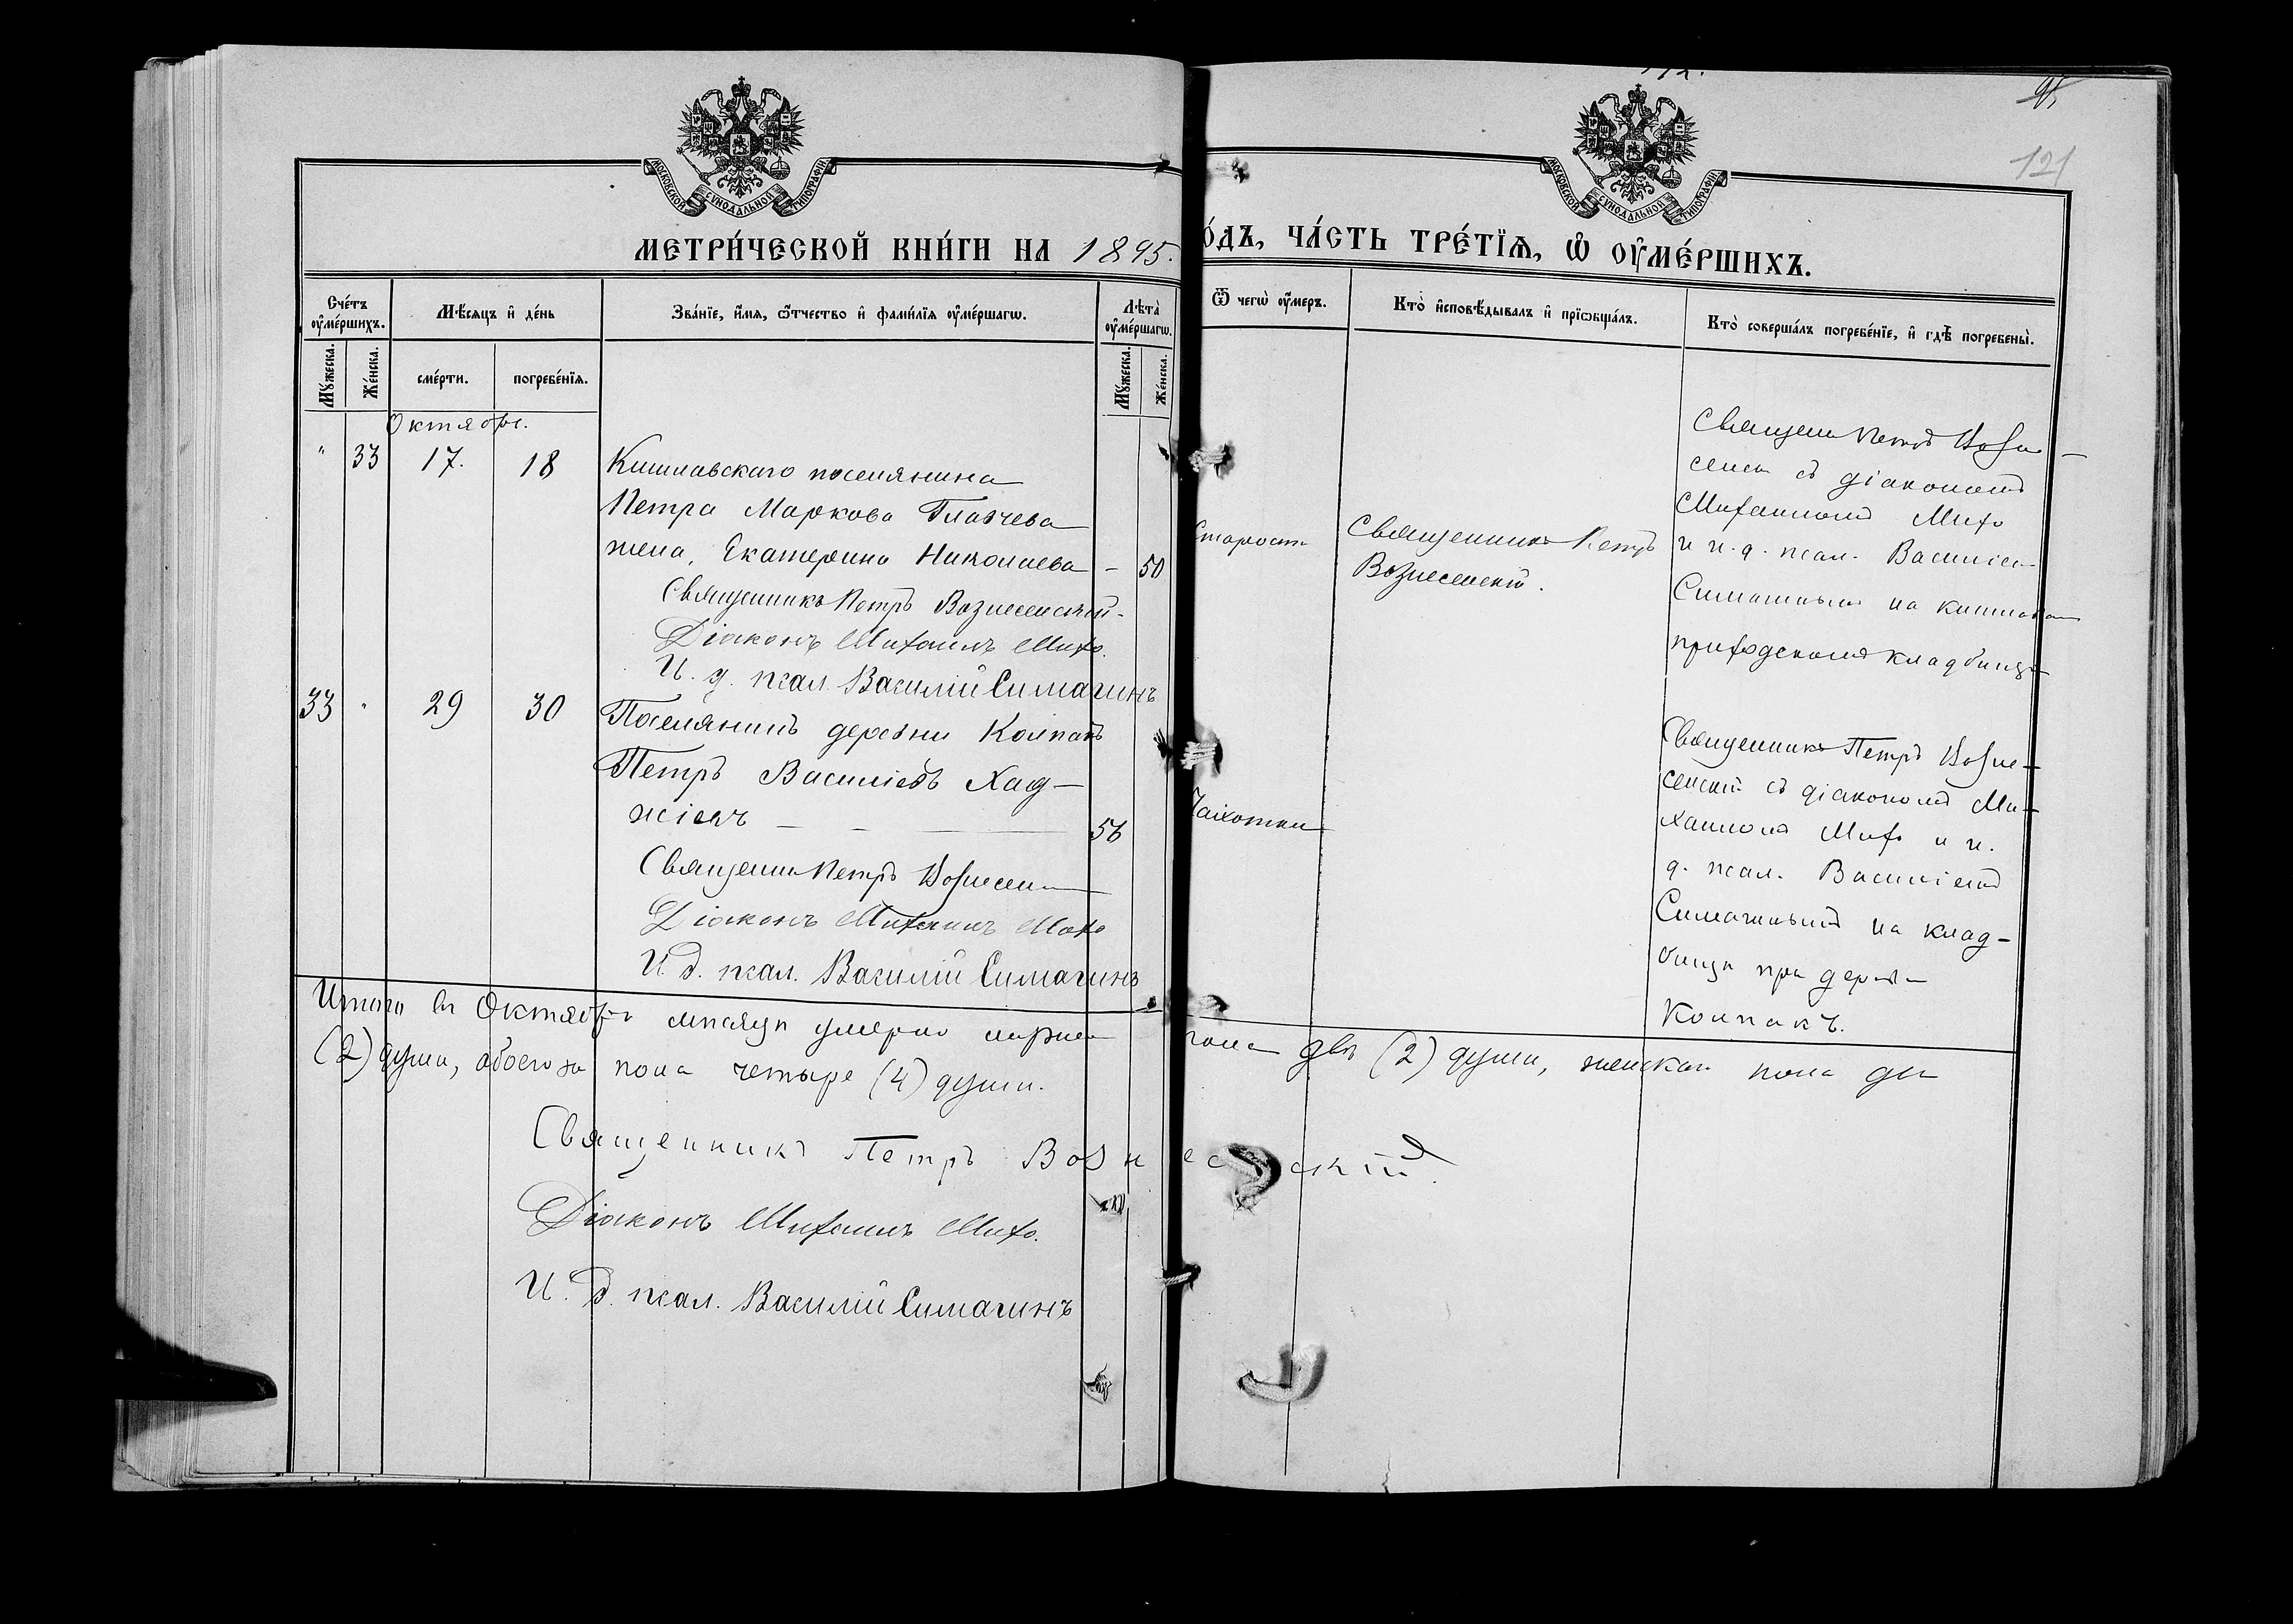 МОСКОВСКОЙ СѴНОДАЛЬНОЙ ТИПОГРАФІИ
МОСКОВСКОЙ СѴНОДАЛЬНОЙ ТИПОГРАФІИ
121
МЕТРИ́ЧЕСКОЙ КНИ́ГИ НА 1895.
О́ДЪ, ЧА́СТЬ ТРЕ́ТІѦ, Ѡ҆ ОУ҆МЕ́РШИХЪ.
Сче́тъ оу҆ме́ршихъ.
Мѣ́сѧцъ и҆ де́нь
Зва́нїе, и҆́мѧ, ѻ҆́тчество и҆ фами́лїѧ оу҆ме́ршагѡ.
Лѣ́та оу҆ме́ршагѡ.
Ѿ чегѡ̀ оу҆́меръ.
Кто̀ и҆сповѣ́дывалъ и҆ прїѡбща́лъ.
Кто̀ соверша́лъ погребе́нїе, и҆ гдѣ̀ погребены̀.
Мꙋ́жеска.
Же́нска.
сме́рти.
погребе́нїѧ.
Мꙋ́жеска.
Же́нска.
Октября.
" 33 17. 18
Кишлавскаго поселянина
Петра Маркова
жена, Екатерина Николаева – 50
Священникъ Петръ Вознесенскій.
Діаконъ Михаилъ Михо.
И. д. псал. Василій Симагинъ
Старости
Священникъ Петръ
Вознесенскій.
Священ Петръ Возне-
сенск съ діакономъ
Михаиломъ Михо
и и. д. псал. Василіем
Симагинымъ на кишлавском
приходскомъ кладбищѣ
33 " 29 30
Поселянинъ деревни Колпакъ
Петръ Василіевъ Хад-
жіевъ – – 56
Священни Петръ Вознесен
Діаконъ Михаилъ Михо
И д. псал. Василій Симагинъ
Чахотки
Священникъ Петръ Возне-
сенскій съ діакономъ Ми-
хаиломъ Михо и и.
д. псал. Василіемъ
Симагинымъ на клад-
бищѣ при деревн
Колпакъ.
Итого въ Октябрѣ мѣсяцѣ умерло мужск пола двѣ (2) души, женскаго пола двѣ
(2) души, обоего же пола четыре (4) души.
Священникъ Петръ Вознесенскій.
Діаконъ Михаилъ Михо.
И. д. псал. Василій Симагинъ